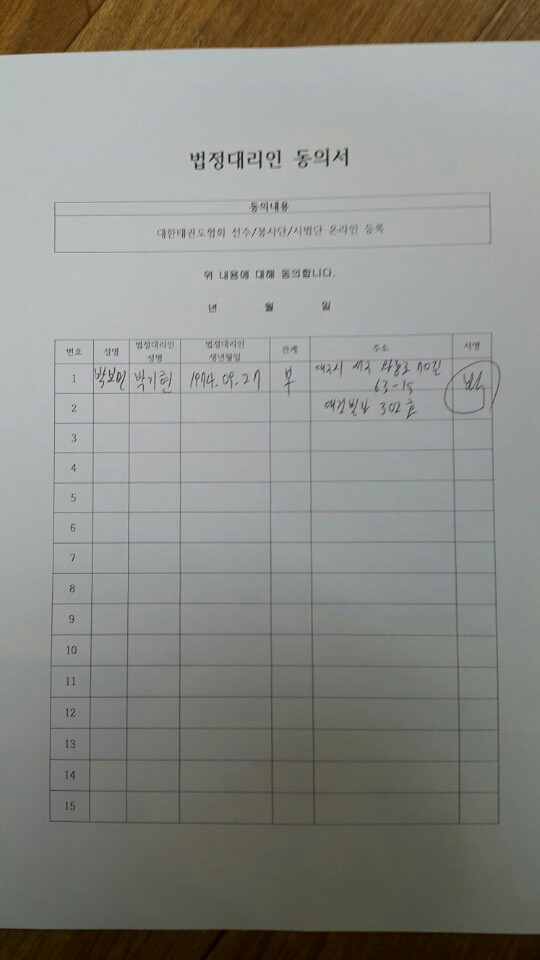 법정대리인 동의서
동의내용
대한태권도협회 선수/봉사단/시범단 온라인 등록
위 내용에 대해 동의합니다.
년 월 일
번호 성명 법정대리인 성명 법정대리인 생년월일 관계 주소 서명
1 박보민 박기현 1974.09.27 부 대구시 서구 70길 박
63-15
2 302호
3
4
5
6
7
8
9
10
11
12
13
14
15